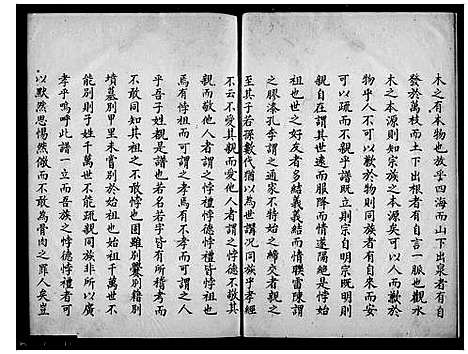 木之有本物也故乎四海而山下出泉者有自
發於萬枝而土下出根者有自言一脈也觀水
木之本源則知宗族之本源矣可以人而歉於
物乎人不可以歉於物則同族者有自來而安
可以疏而不親乎譜既立則宗自明宗既明則
親自在謂其世遠而服降而情遂隔絕是悖始
祖也世之好友者多結義義結而情聯雷陳謂
之膠漆孔李謂之通家不特始之締交者親之
至其子若孫數代猶以為世講況同族乎孝經
不云不愛其親而愛他人者謂之悖德不敬其
親而敬他人者謂之悖禮悖德悖禮皆悖祖也
焉有而悖祖謂之孝焉有不孝而可謂之人
乎吾子姓親是譜也若名若字皆有所稽考而
不敢同知其祖之不可悖也困雖別爨別籍別
墳墓別甲里未嘗別於始祖也始祖千萬世不
能別則子姓千萬世不能疏親同族非所以廣
孝乎嗚呼此譜一立而吾族之悖德悖禮者可
以默然思惕然儆而不敢為骨肉之罪人矣豈